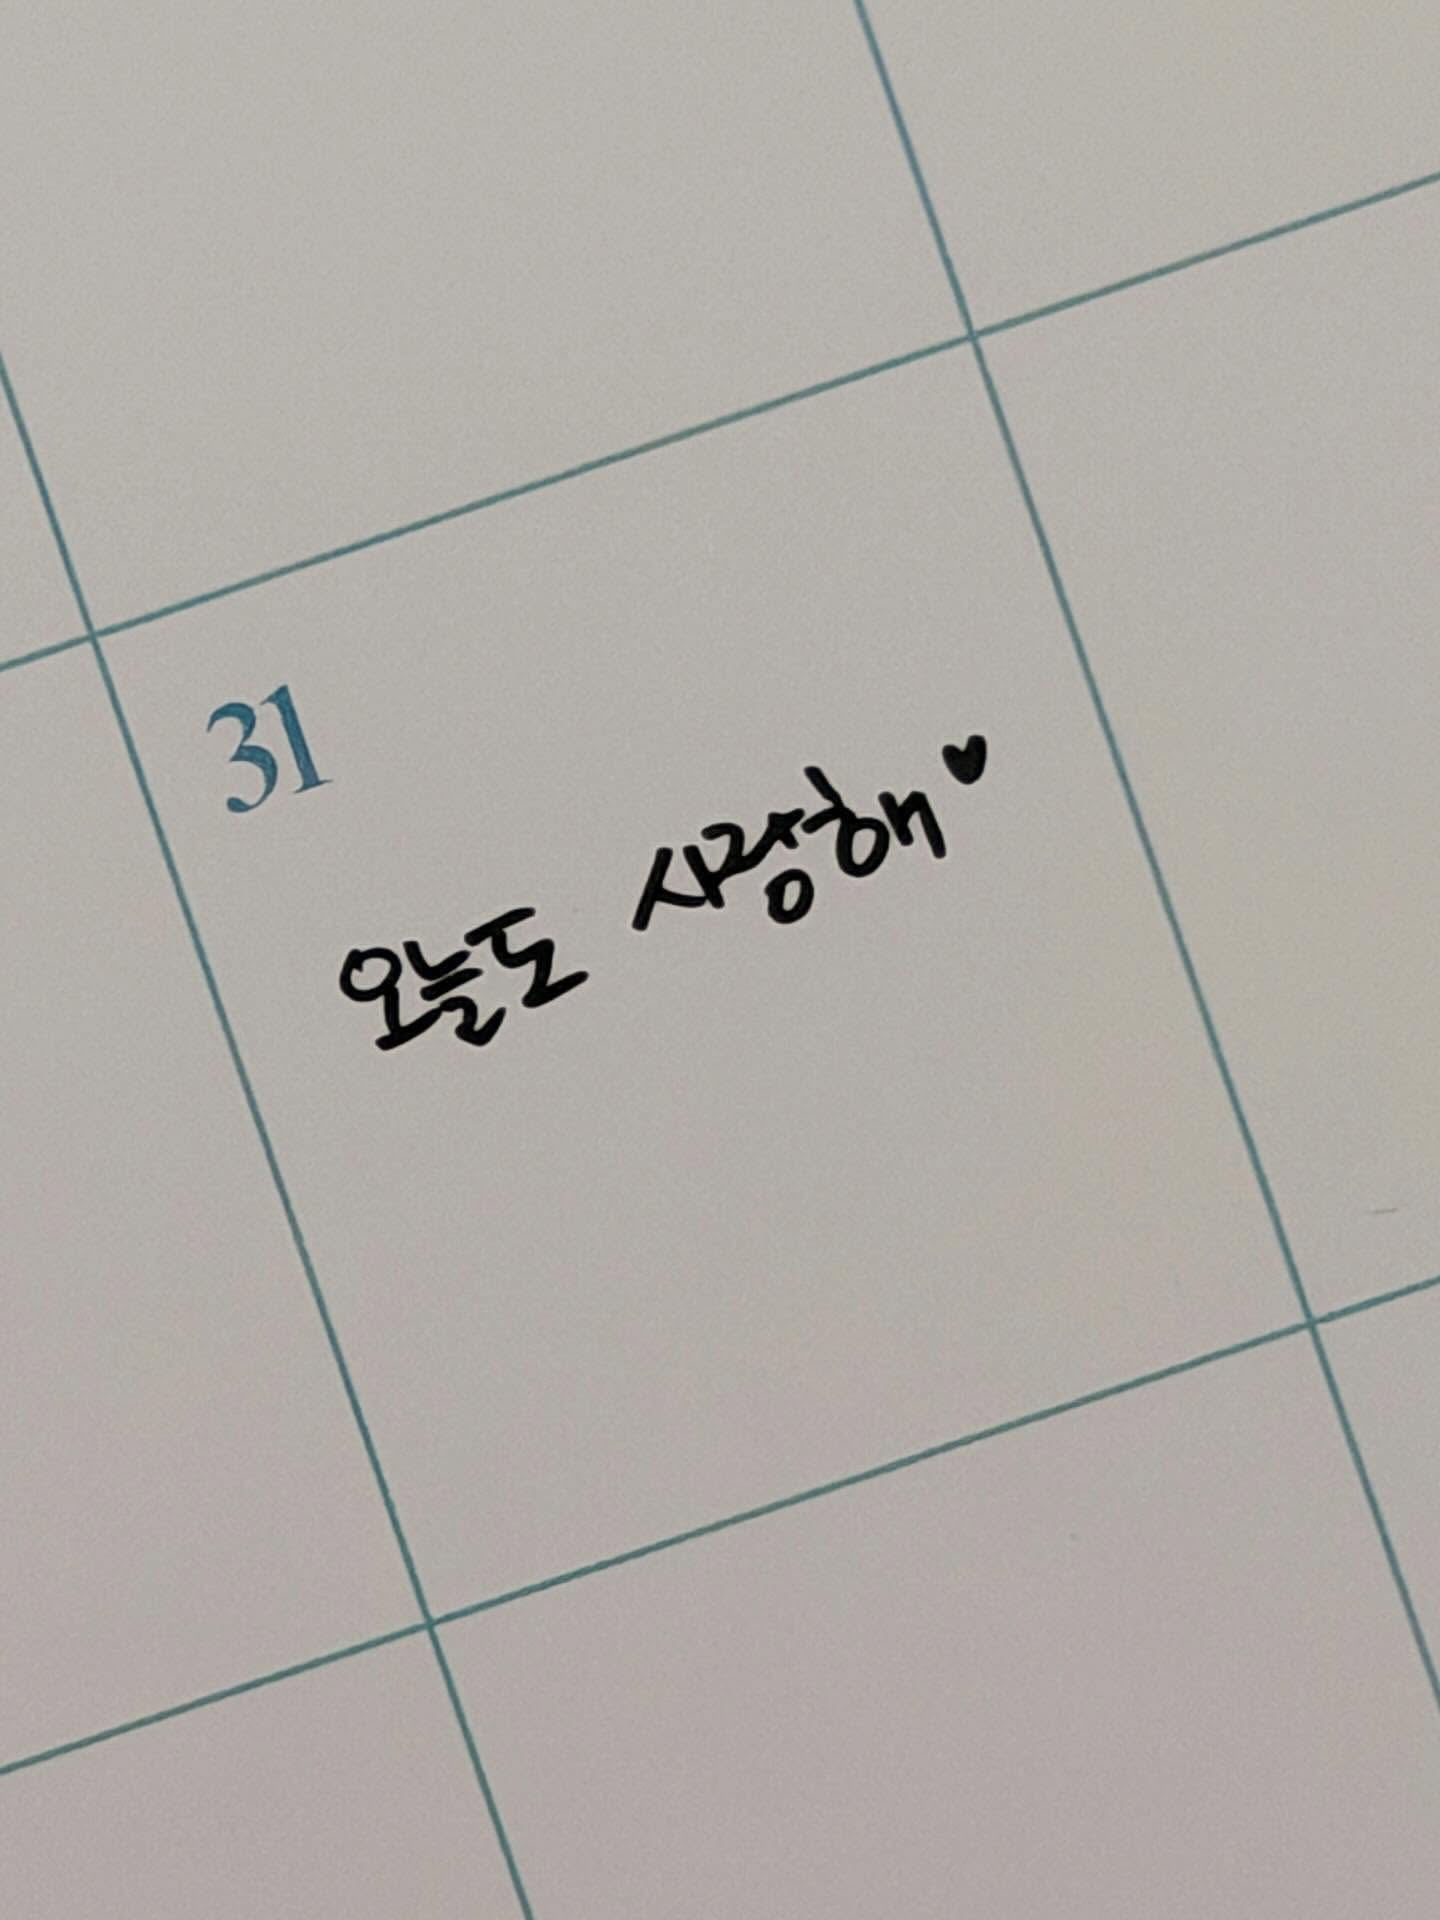 31
오늘도 사랑해♥